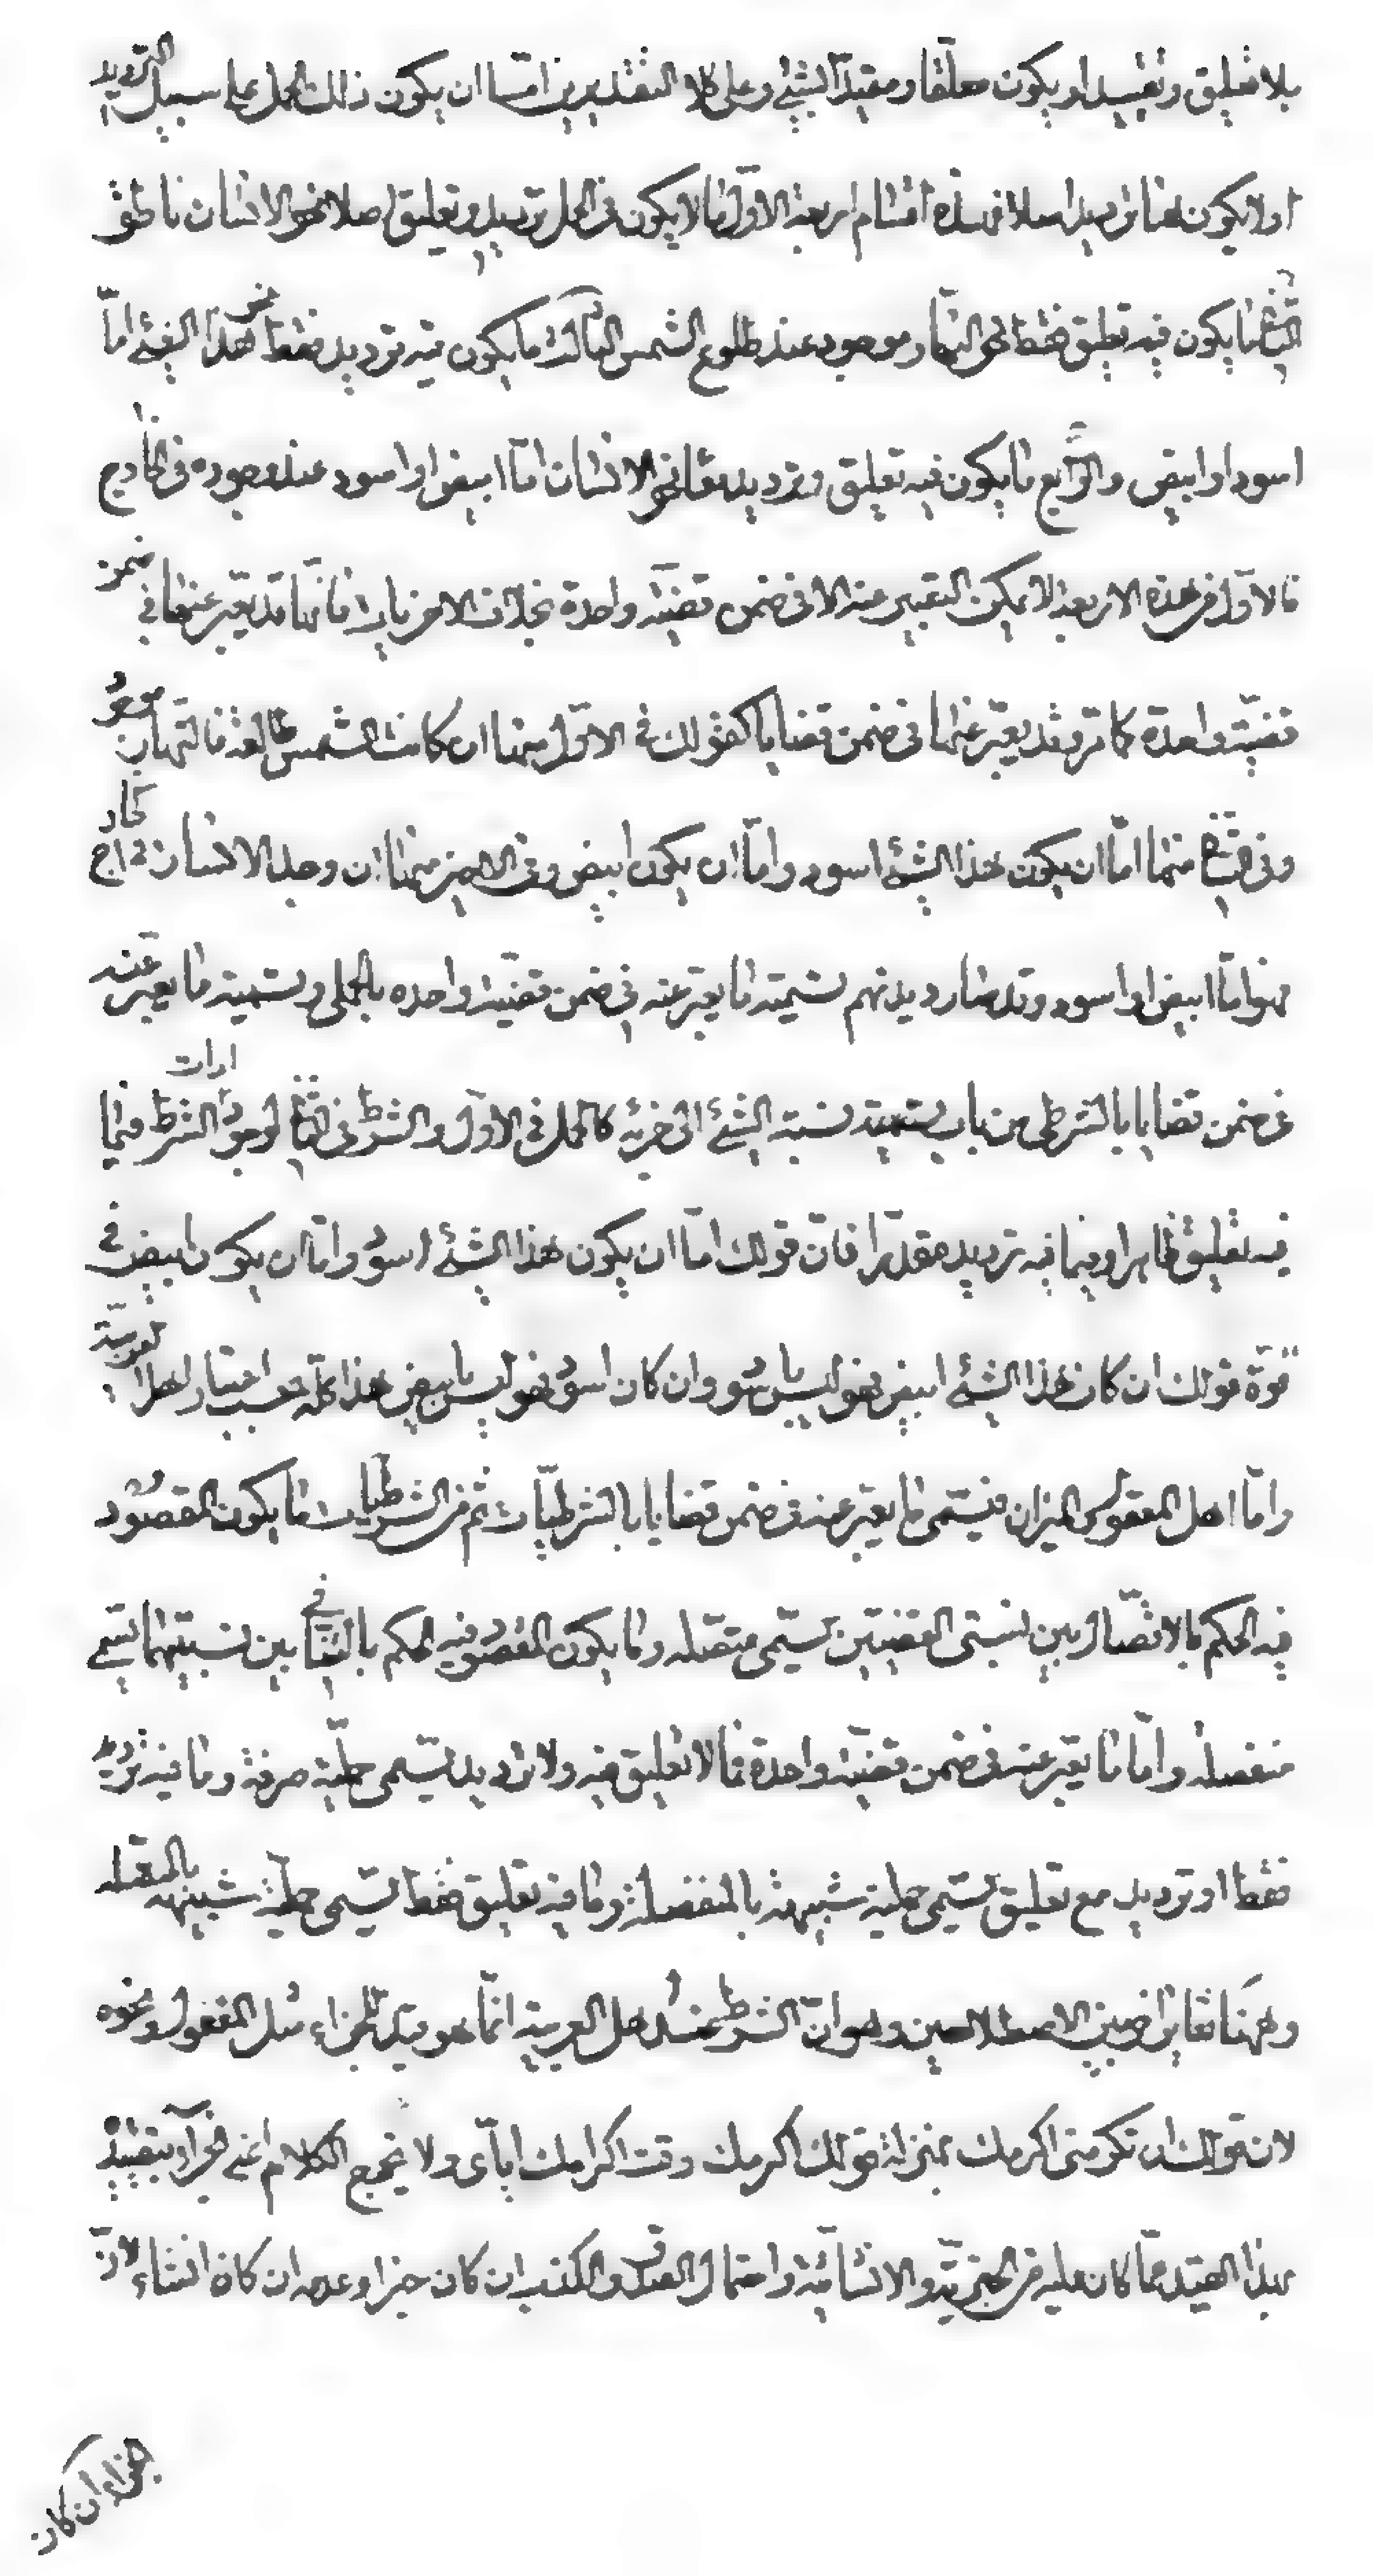 بلا تعليق وتقييد او يكون معلقا ومقيدا بشيئ وعلى كلا التقديرين امّا ان يكون ذلك الحمل على سبيل الترديد
اولا يكون هنا ترديد اصلا فهذه اقسام اربعة الاوّل ما لا يكون في الحمل ترديد وتعليق اصلا نحو الانسان ناطق
الثاني ما يكون فيه تعليق فقط نحو النهار موجود عند طلوع الشمس الثالث ما يكون فيه ترديد فقط نحو هذا الشيئ امّا
اسود او ابيض والرّابع ما يكون فيه تعليق وترديد معا نحو الانسان امّا ابيض او اسود عند وجوده في الخارج
فالاوّل من هذه الاربعة لا يمكن التعبير عنه الا في ضمن قضيّة واحدة بخلاف الاخريات فانها قد يعبّر عنها في ضمن
قضيّة واحدة كما تر وقد يعبّر عنها في ضمن قضايا كقولك في الاوّل منها ان كانت الشمس طالعة فالنّهار موجود
وفي الثاني منها امّا ان يكون هذا الشيئ اسود وامّا ان يكون ابيض وفي الاخير منها ان وجد الانسان في الخارج
فهو امّا ابيض او اسود وقد صار ديدنهم تسمية ما يعبّر عنه في ضمن قضيّة واحده بالحملى وتسمية ما يعبّر عنه
في ضمن قضايا بالشرطى من باب تسمية نسبة الشيئ الى جزئه كالحمل في الاوّل والشرط في الثاني لوجود ادات الشرط فيما
فيه تعليق ظاهرا وفيما فيه ترديد مقدّرا فانّ قولك امّا ان يكون هذا الشيئ اسود وامّا ان يكون ابيض في
قوّة قولك ان كان هذا الشيئ ابيض فهو ليس باسود وان كان اسود فهو ليس بابيض هذا كلّه بحسب اعتبار اهل العربيّة
وامّا اهل المعقول الميزان فيسمّى ما يعبّر عنه في ضمن قضايا بالشرطيّات ثم من الشرطيّات ما يكون المقصود
فيه الحكم بالاتّصال بين نسبتى القضيتين يسمّى متّصله وما يكون المقصود فيه الحكم بالتنافي بين نسبتيهما يسمّى
منفصله وامّا ما يعبّر عنه في ضمن قضيّة واحدة فما لا تعليق فيه ولا ترديد يسمّى حمليّة صرفة وما فيه ترديد
فقط او ترديد مع تعليق يسمّى حملية شبيهة بالمنفصلة وما فيه تعليق فقط يسمّى حمليّة شبيهة بالمتّصله
وههنا تغاير اخر بين الاصطلاحين وهو انّ الشرط عند اهل العربية انّما هو قيد للجزاء مثل المفعول ونحوه
لان قولك ان تكرمنى اكرمك بمنزلة قولك اكرمك وقت اكرامك ايّاى ولا يخرج الكلام اعنى الجزاء بتقييده
بهذا القيد عمّا كان عليه من الخبريّة والانشائيّة واحتمال الصدق والكذب ان كان خبرا وعدمه ان كان انشاء لانّ
الجزاء ان كان